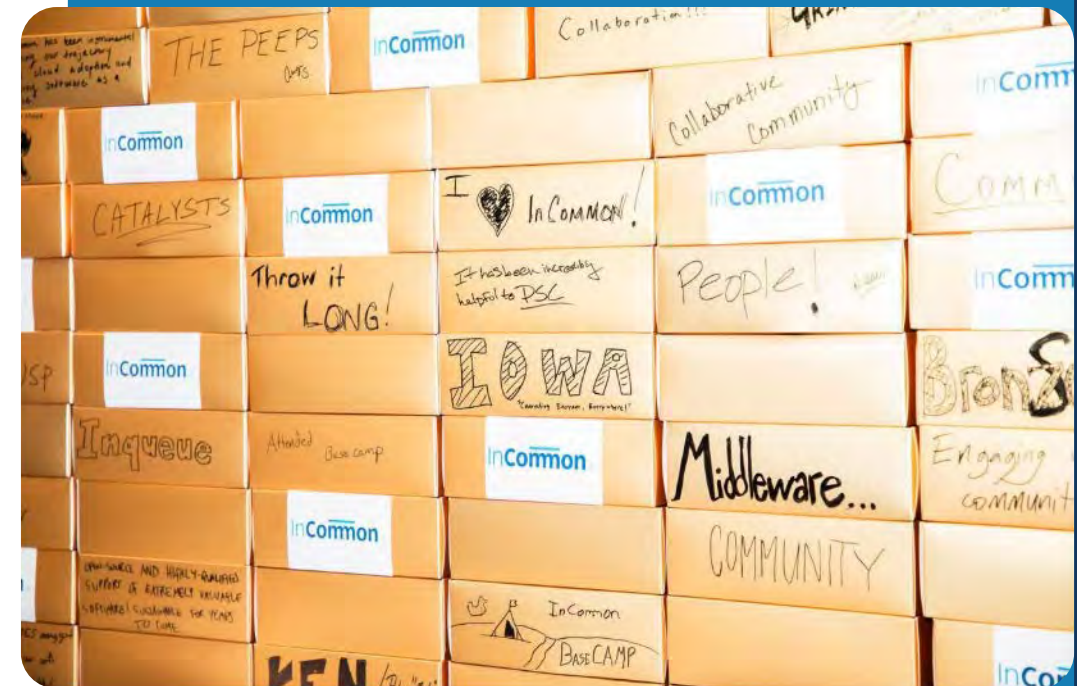 our trajectory
cloud adoption and
software as a
THE PEEPS
InCommon
Collaboration!!!
InCommon
Collaborative
Community
InComm
CATALYSTS
InCommon
I InCommon!
InCommon
Comm
Throw it
LONG!
It has been incredibly
helpful to DSC
People!
InComm
InCommon
IOWA
Bronze
Inqueue
Attended
Base camp
InCommon
Middleware...
Engaging
communit
InCommon
COMMUNITY
OPEN-SOURCE AND HIGHLY-QUALIFIED
SUPPORT OF EXTREMELY VALUABLE
SOFTWARE! SUSTAINABLE FOR YEARS
TO COME
InCommon
BASECAMP
KEN
InCo